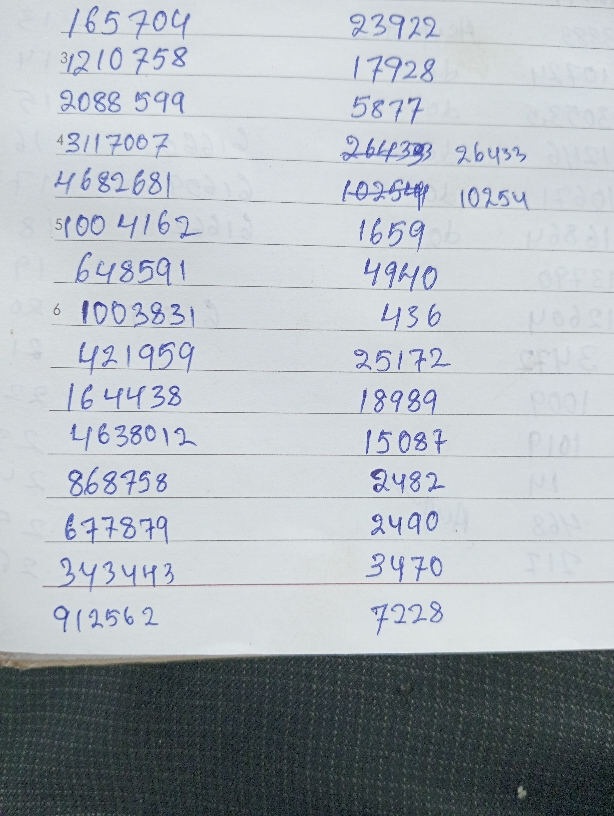 165704 23922
3 1210758 17928
2088599 5877
4 3117007 26433 26433
4682681 10254 10254
5 1004162 1659
648591 4940
6 1003831 436
421959 25172
164438 18989
4638012 15087
868758 2482
677879 2490
343443 3470
912562 7228